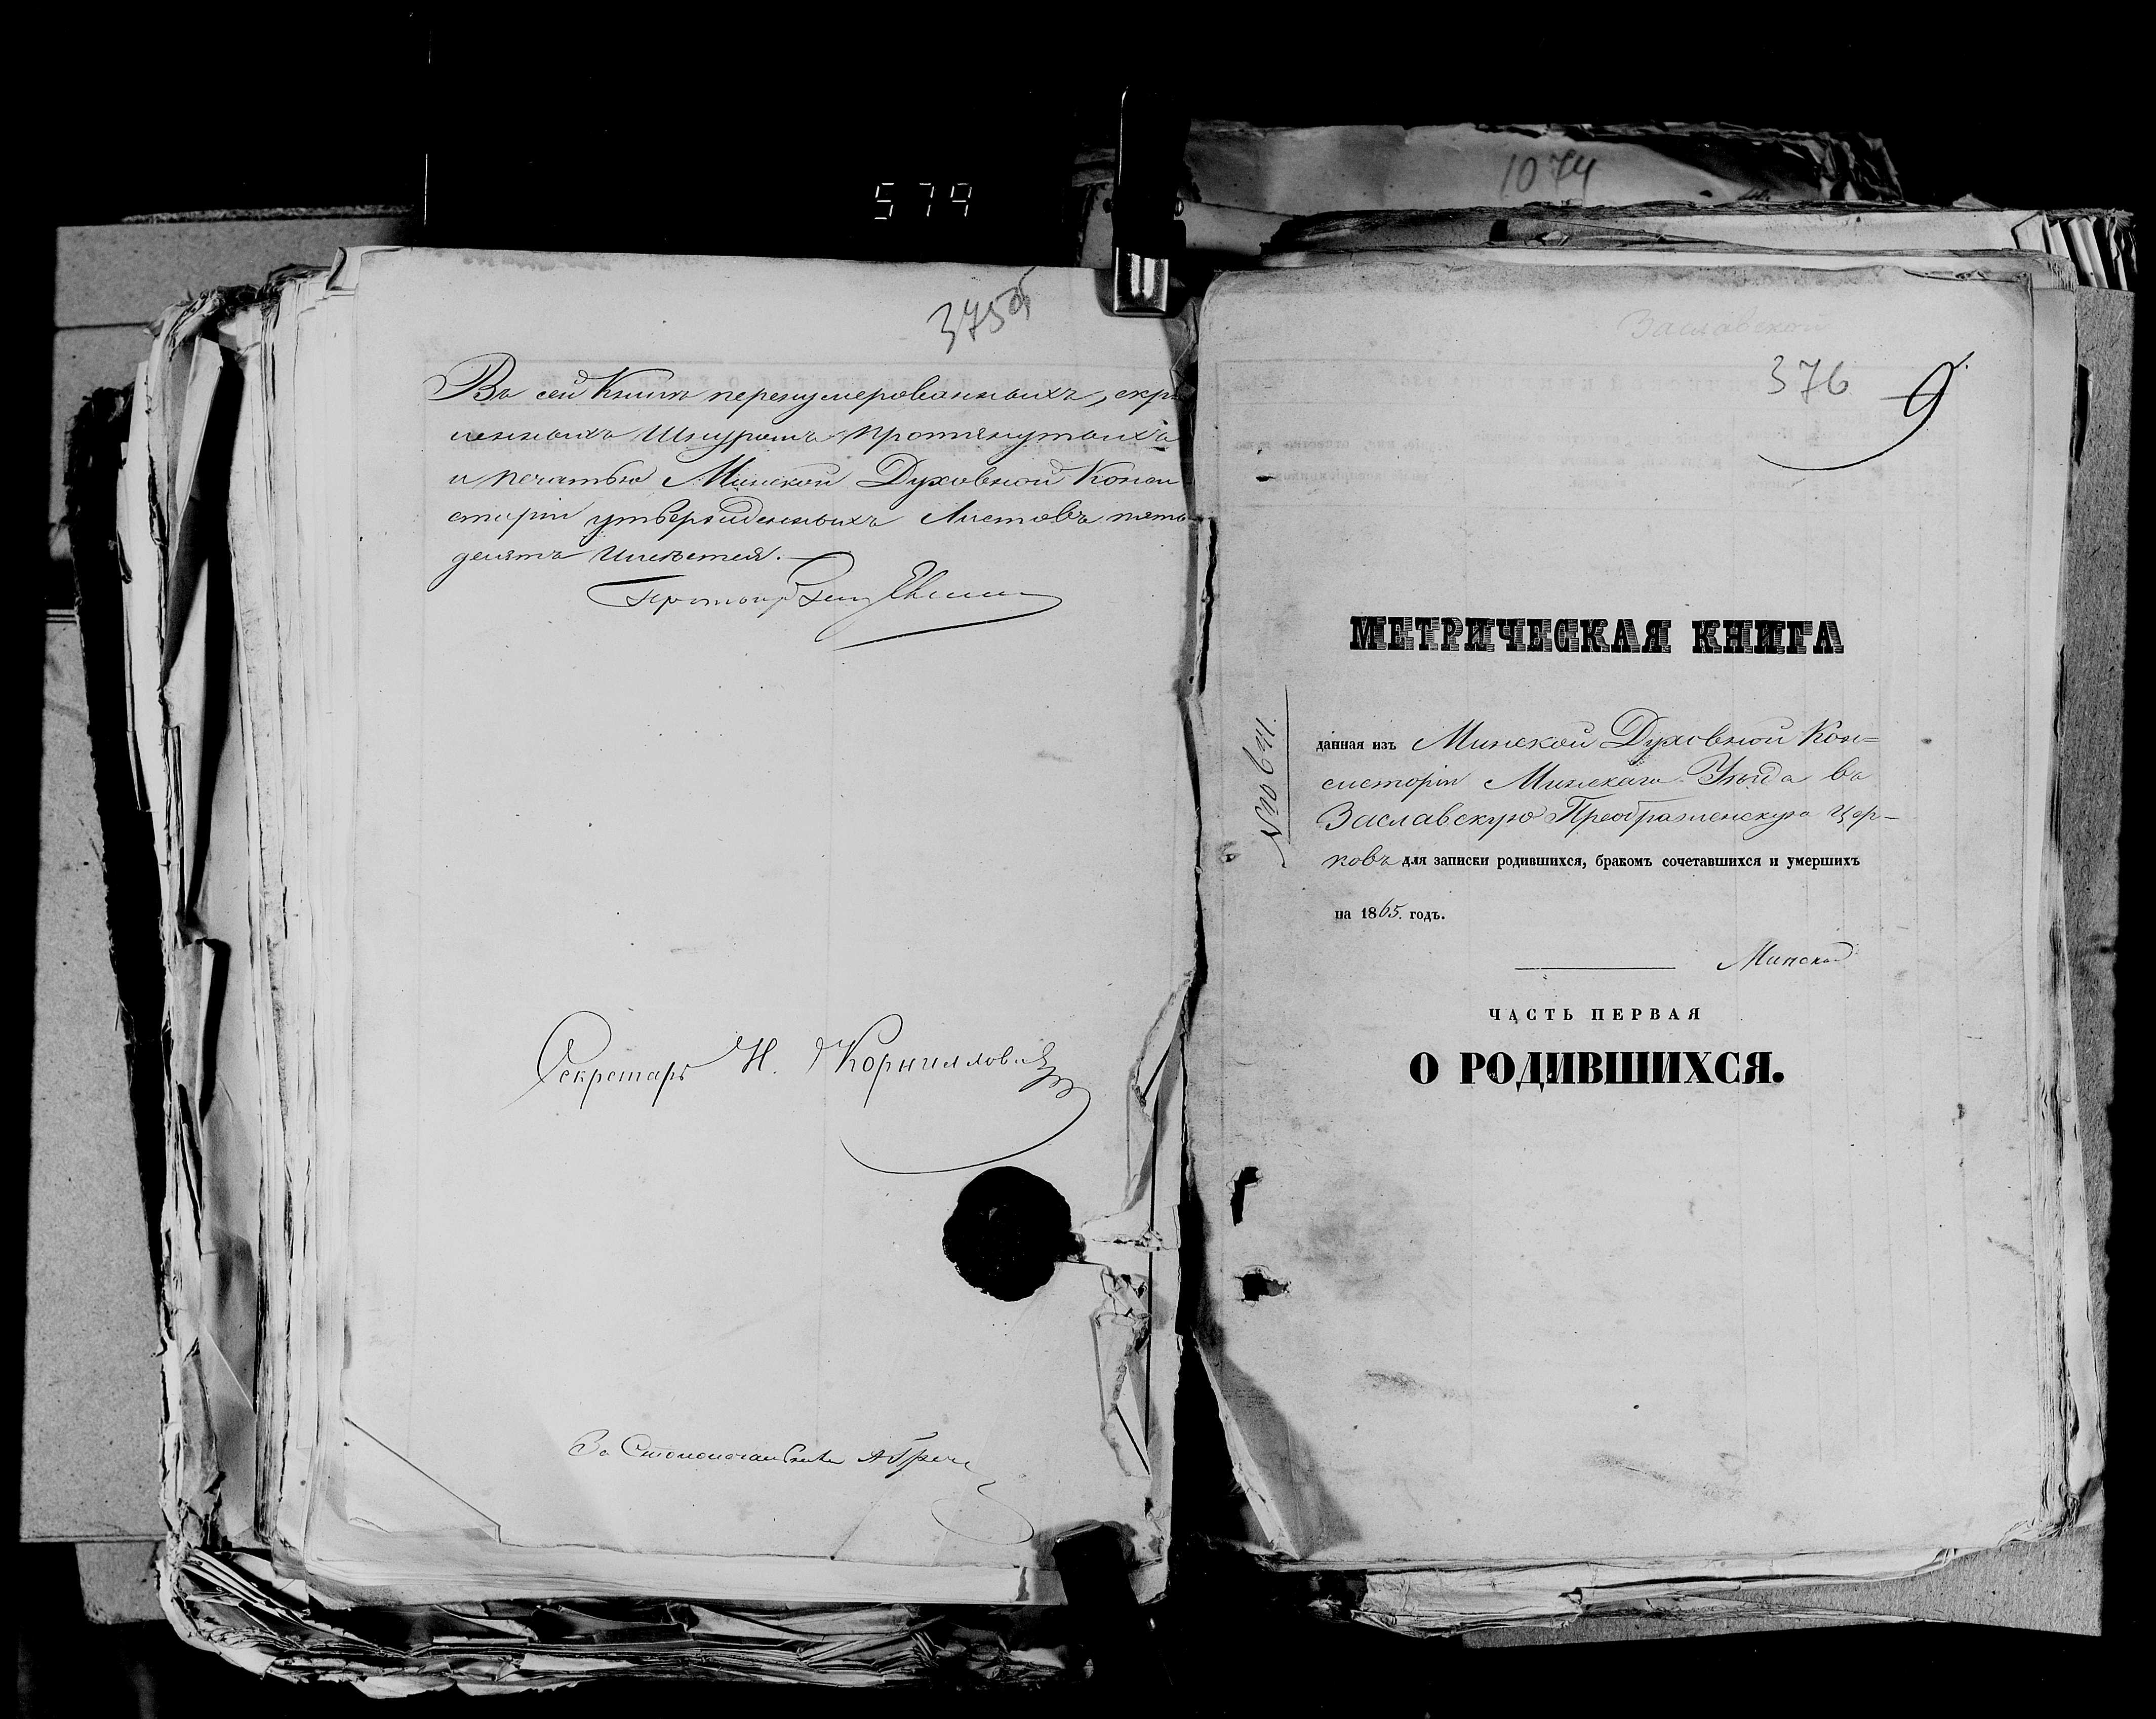 579
1074
375об
Въ сей Книгѣ перенумерованныхъ, скрѣ
пленныхъ Шнуромъ протянутыхъ
и печатью Минской Духовной Конси
сторіи утвержденныхъ Листовъ пять
десятъ имѣется.
Секретарь Н. Корниловичъ
За Столоначальника
Заславской
376 9
МЕТРИЧЕСКАЯ КНИГА
№ 641.
данная изъ Минской Духовной Кон=
систоріи Минскаго Уѣзда въ
Заславскую Преображенскую Цер-
ковь для записки родившихся, бракомъ сочетавшихся и умершихъ
на 1865. годъ.
Минской
ЧАСТЬ ПЕРВАЯ
О РОДИВШИХСЯ.